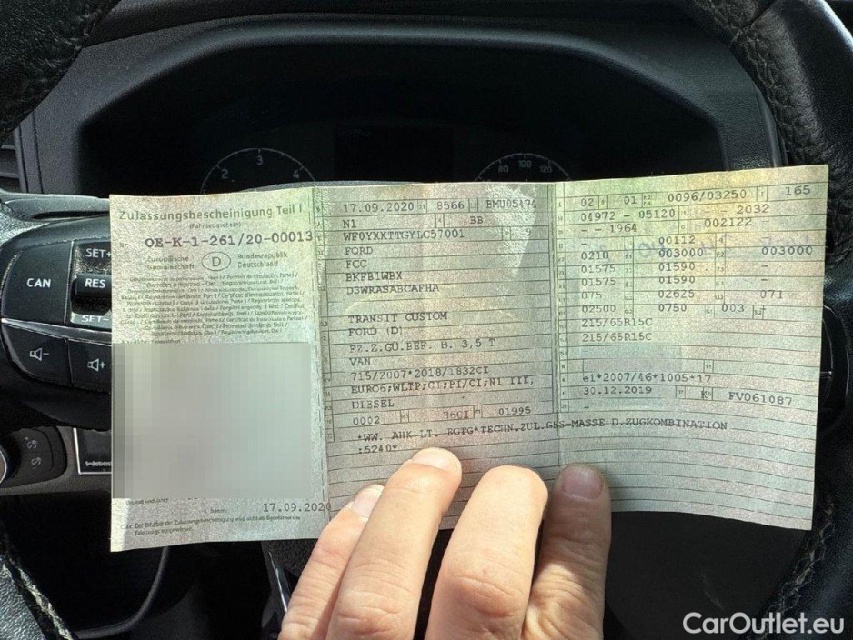 Zulassungsbescheinigung Teil I
(Fahrzeugschein)
OE-K-1-261/20-00013
Europäische Gemeinschaft
D
Bundesrepublik Deutschland
17.09.2020
17.09.2020 8566 BMU05474
N1 BB
WF0YXXTTGYLC57001
FORD
FCC
BKFB1WBX
D3WRASABCAFHA
TRANSIT CUSTOM
FORD (D)
FZ.Z.GU.BEF. B. 3,5 T
VAN
715/2007*2018/1832CI
EURO6;WLTP;CI;PI/CI;N1 III;
DIESEL
0002 36CI 01995
*WW. AHK LT. EGTG*TECHN.ZUL.GES-MASSE D.ZUGKOMBINATION
:5240*
02 01 0096/03250 165
04972 - 05120 - 2032
- - 1964 002122
- 00112 -
0210 003000 003000
01575 01590 -
01575 01590 -
075 02625 071
02500 0750 003
215/65R15C
215/65R15C
e1*2007/46*1005*17
30.12.2019 K FV061087
CAN
SET+
RES
SET-
2 3 4
80 100 120
CarOutlet.eu